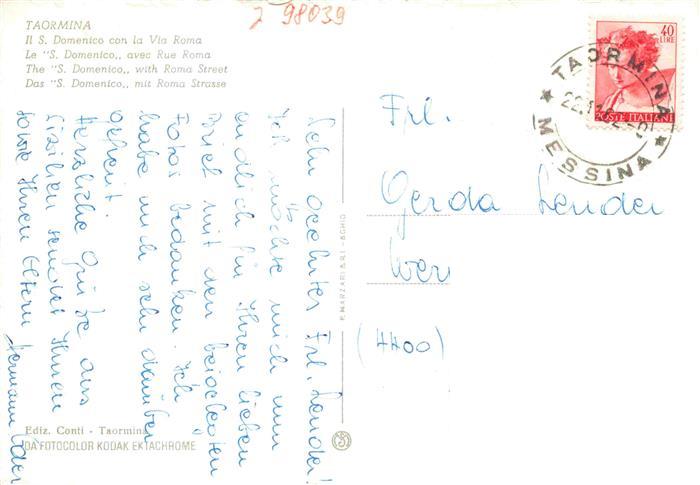 J 98039
TAORMINA
Il S. Domenico con la Via Roma
Le "S. Domenico,, avec Rue Roma
The "S. Domenico,, with Roma Street
Das "S. Domenico,, mit Roma Strasse
40
LIRE
POSTE ITALIANE
TAORMINA
MESSINA
Frl.
Gerda Lender
Wer
(4400)
Sehr geehrtes Frl. Lender!
Ich möchte mich nun
endlich für Ihren lieben
Brief mit den beigelegten
Fotos bedanken. Ich
habe mich sehr darüber
gefreut.
Herzliche Grüße aus
Sizilien sendet Ihnen
sowie Ihren Eltern Hermann
P. MARZARI S.R.L. - SCHIO
Ediz. Conti - Taormina
DA FOTOCOLOR KODAK EKTACHROME